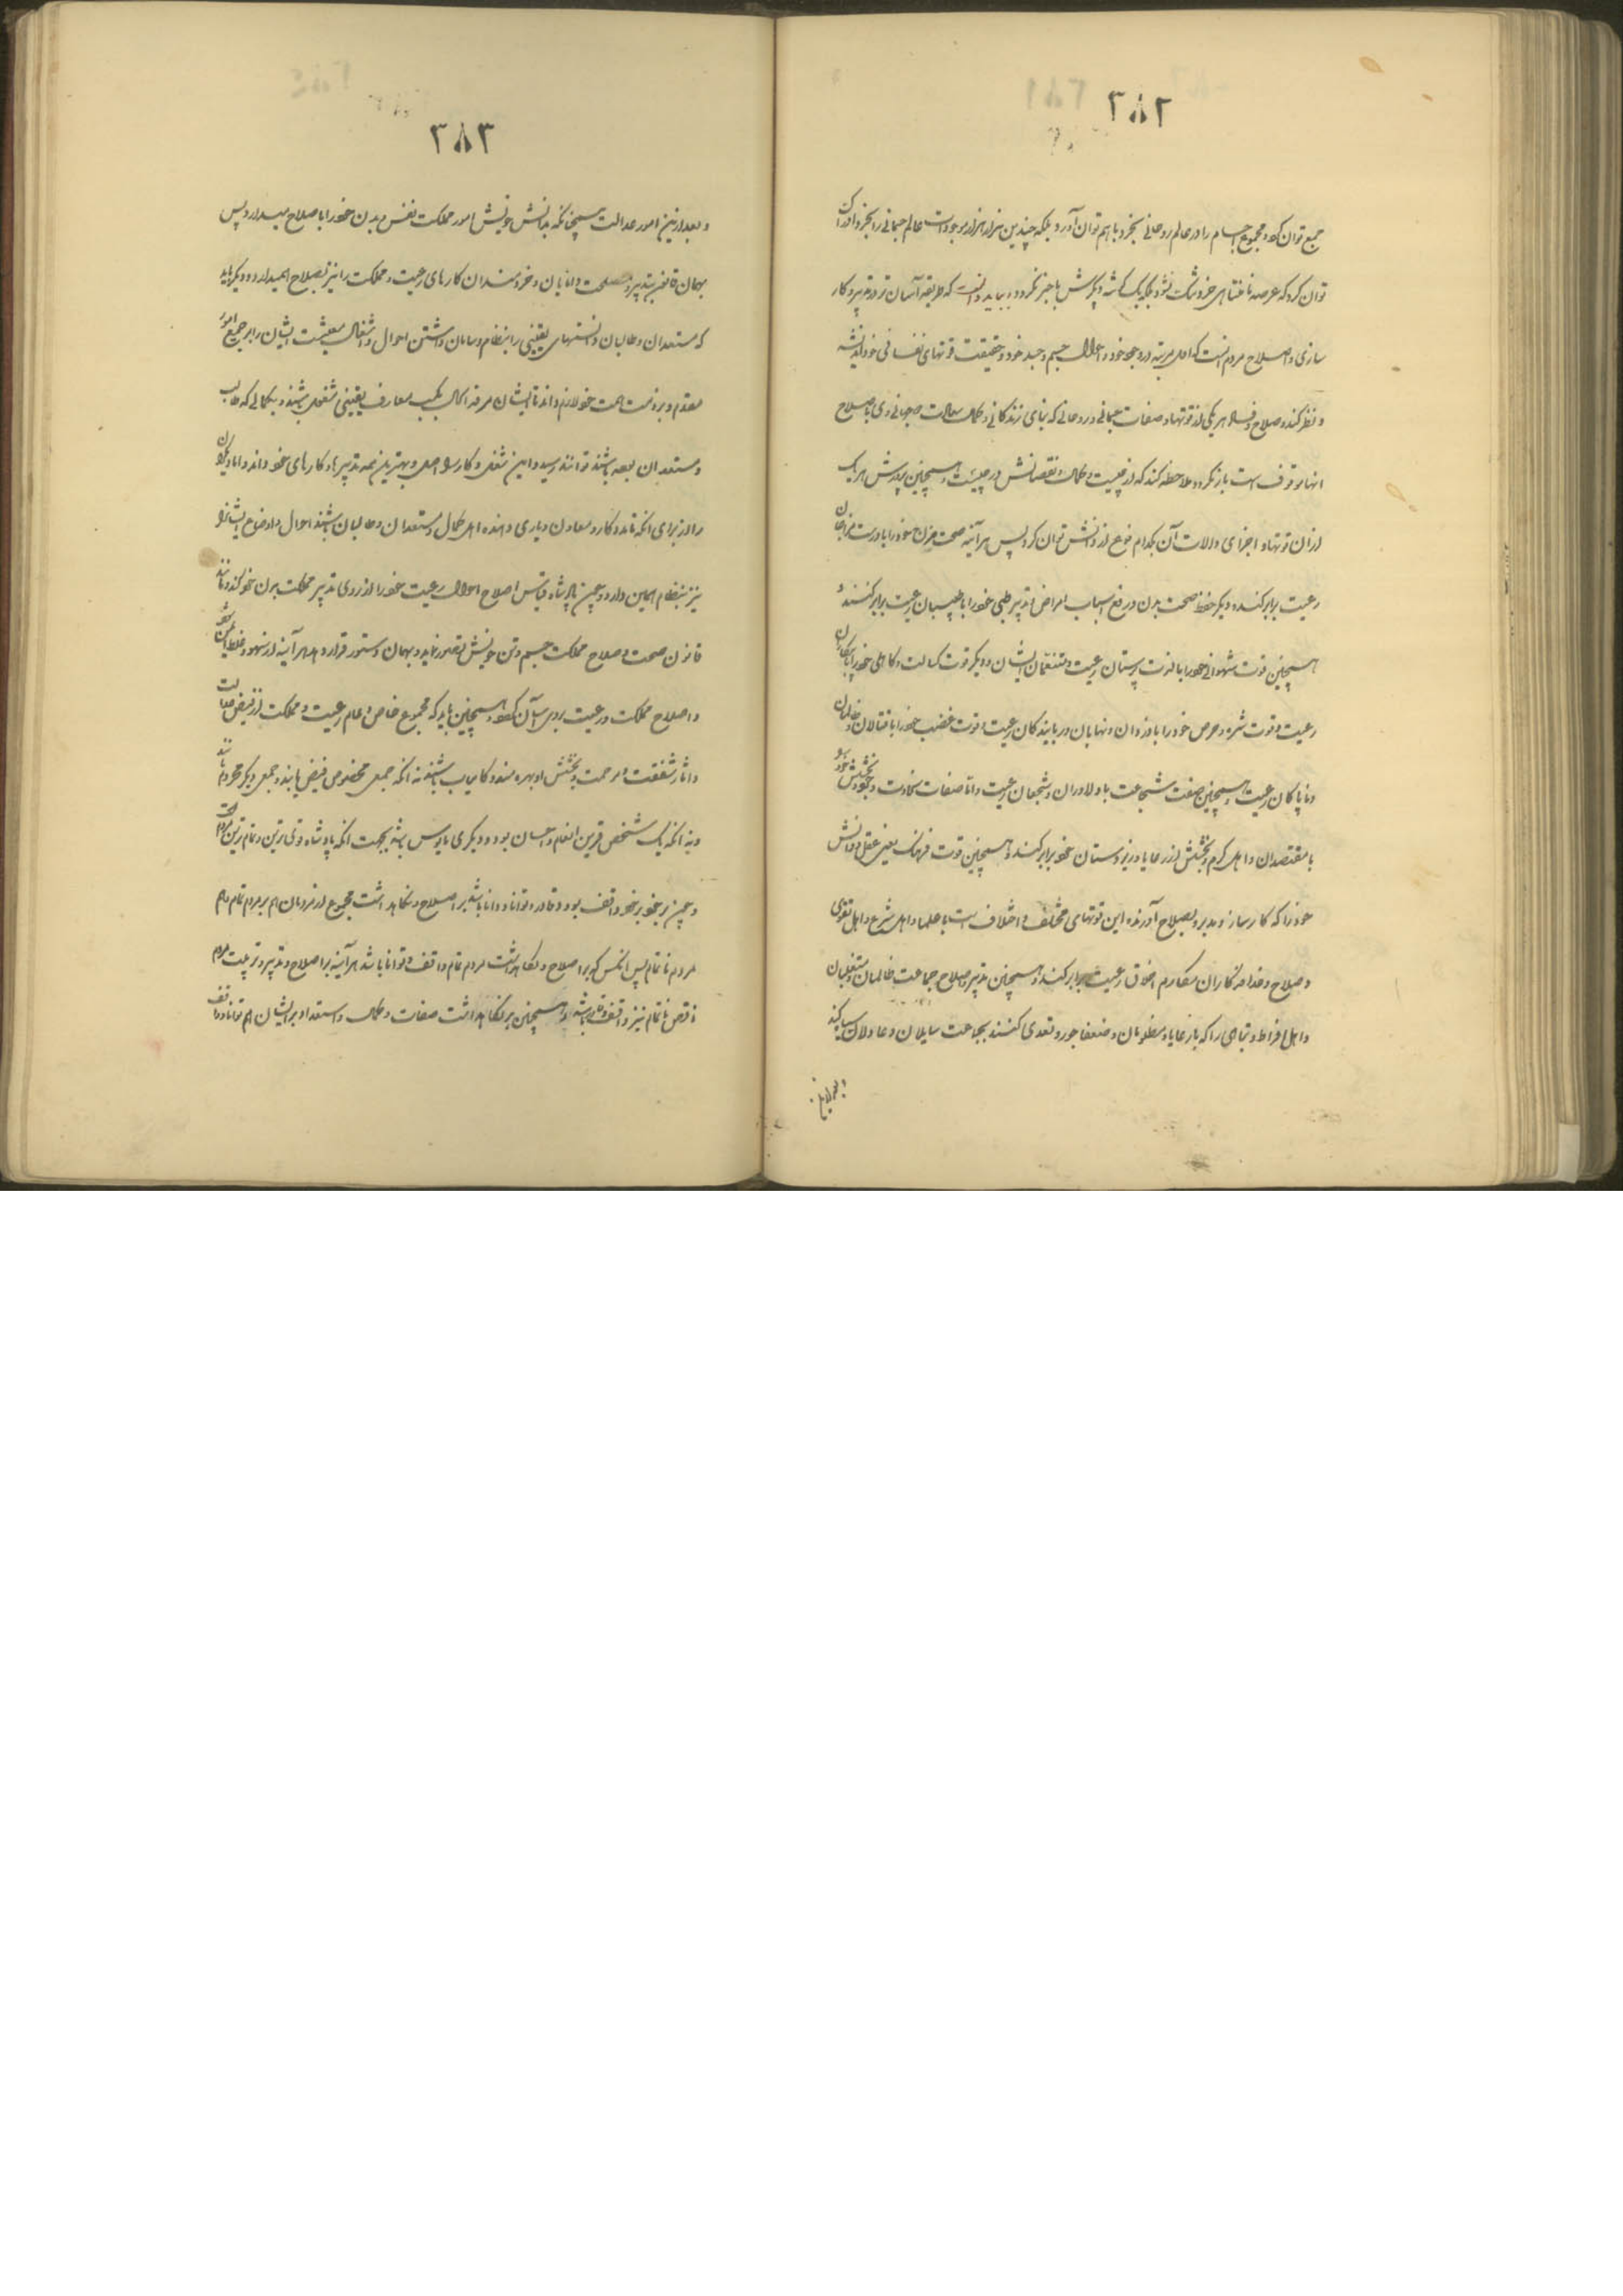 ۳۸۲
جمع توان کرد و مجموع اجسام را در عالم روحانی بخرد باهم توان آورد بلکه چندین هزار هزار موجودات عالم جسمانی را بخرد ادراک
توان کرد که عرصه نامتناهی خرد تنگ نشود بلکه یک گوشه دیگرش باخبر نگردد و بباید دانست که طریقه آسان تر در تدبیر و کار
سازی و اصلاح مردم آنست که اول مرتبه در وجود خود و احوال جسم و جسد خود و حقیقت قوتهای نفسانی خود اندیشه
و نظر کند و صلاح و فساد هر یکی از قوتها و صفات جسمانی و روحانی که بنای زندگانی و کمال سعادت جهانی وی باصلاح
انها موقوف است باز نگرد و ملاحظه کند که از چیست و کمال و نقصانش در چیست و همچنین پرورش هر یک
ازان قوتها و اجزای و الات آن بکدام نوع از دانش توان کرد پس هر آینه صحت مزاج خود را با درست مزاجان
رعیت برابر کند و دیگر حفظ صحت بدن و رفع اسباب امراض و تدبیر طبی خود را با طبیبان رعیت برابر کند و
همچنین قوت شهوانی خود را با لذت پرستان رعیت و متنعمان ایشان و دیگر قوت کسالت و کاهلی خود را با بیکاران
رعیت و قوت شره و حرص خود را با دزدان و نهابان و ربایندکان رعیت و قوت غضب خود را با قتالان و ظالمان
و ناپاکان رعیت و همچنین صفت شجاعت با دلاوران و شجعان رعیت و اتا صفات سخاوت و جود و بخشش خود را
با مقتصدان و اهل کرم و بخشش از رعایا و زیردستان خود برابر کند و همچنین قوت فرهنگ یعنی عقل و دانش
خود را که کارساز و مدبر و بصلاح آورنده این قوتهای مختلف و اختلاف است با علما و اهل شرع و اهل تقوی
و صلاح و خدمتکاران مکارم اخلاق رعیت برابر کند و همچنین تدبیر و صلاح جماعت ظالمان و متغلبان
و اهل افراط و تباهی را که با رعایا و مظلومان و ضعفا جور و تعدی کنند بجماعت سایلان و عادلان سپاه کند
۳۸۳
و بعد ازین امور عدالت همچنانکه بدانش خویش امور مملکت نفس و بدن خود را با صلاح میدارد پس
بهمان قانون بتدبیر و مصلحت دانایان و خردمندان کارهای رعیت و مملکت را نیز بصلاح همیدارد و دیگر باید
که مستعدان و طالبان دانستهای یقینی را بنظام و سامان داشتن احوال و اشغال معیشت ایشان را بر جمیع امور
مقدم و بر ذمت همت خود لازم داند تا ایشان مرفه الحال بکسب معارف یقینی مشغول باشند و بکمالی که طالب
و مستعد ان بوده باشند توانند رسید و این شغل و کار را اصل و بهترین همه تدبیرها و کارهای خود داند و اما دیگران
را از برای آنکه تا مددکار و معاون و یاری دهنده اهل کمال و مستعدان و طالبان باشند احوال و اوضاع ایشانرا
نیز بنظام همین دارد و چون پادشاه قیاس اصلاح احوال رعیت خود را از روی تدبیر مملکت بدن خود کند و مانند
قانون صحت و صلاح مملکت جسم و تن خویش تصور نماید و بهمان دستور قرار دهد هر آینه از سهو و غلط ایمن شود
و اصلاح مملکت و رعیت بر وی آسان کردد و همچنین باید که مجموع خاص و عام رعیت و مملکت از فیض عدالت
و اثار شفقت و مرحمت و بخشش او بهره مند و کامیاب باشند نه آنکه جمعی مخصوص فیض یابند و جمعی دیگر محروم مانند
و نه آنکه یک شخص قرین انعام و احسان بود و دیگری مایوس باشد بجهت آنکه پادشاه قوی ترین و تمام ترین مردم است
و چون بر خود برخود واقف بود و قادر و توانا و دانا باشد بر اصلاح و نکاهداشت مجموع از مردمان هم بر مردم تمام و هم
مردم ناتمام پس انکس که بر اصلاح و نکاهداشت مردم تمام واقف و توانا باشد هر آینه بر اصلاح و تدبیر و تربیت مردم
ناقص ناتمام نیز واقف و قادر باشد و همچنین بر نکاهداشت صفات و کمال و استعداد بر ایشان هم توانا و واقف